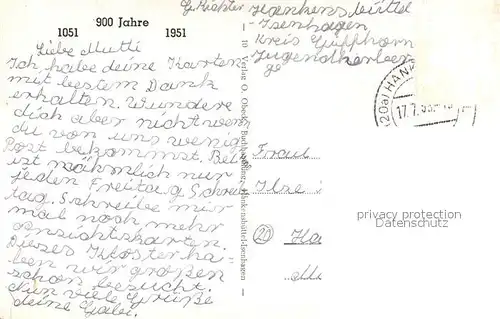 900 Jahre
1051 1951
G. Richter
Hankensbüttel
-Isenhagen
Kreis Giffhorn
Jugendherber
ge
Liebe Mutti
Ich habe deine Karten
mit bestem Dank
erhalten. Wundere
dich aber nicht wenn
du von uns wenig
Post bekommst. Bei
ist nähmlich nur
jeden Freitag Schreib
tag. Schreibe mir
mal noch mehr
Ansichtskarten.
Dieses Kloster ha
ben wir großen
schon besucht.
Nun viele Grüße
deine Gabi.
10 Verlag O. Buchhandlung, Hankensbüttel-Isenhagen
(20a) HANK
17.7.
Frau
Ilse
20 Ha
privacy protection
Datenschutz